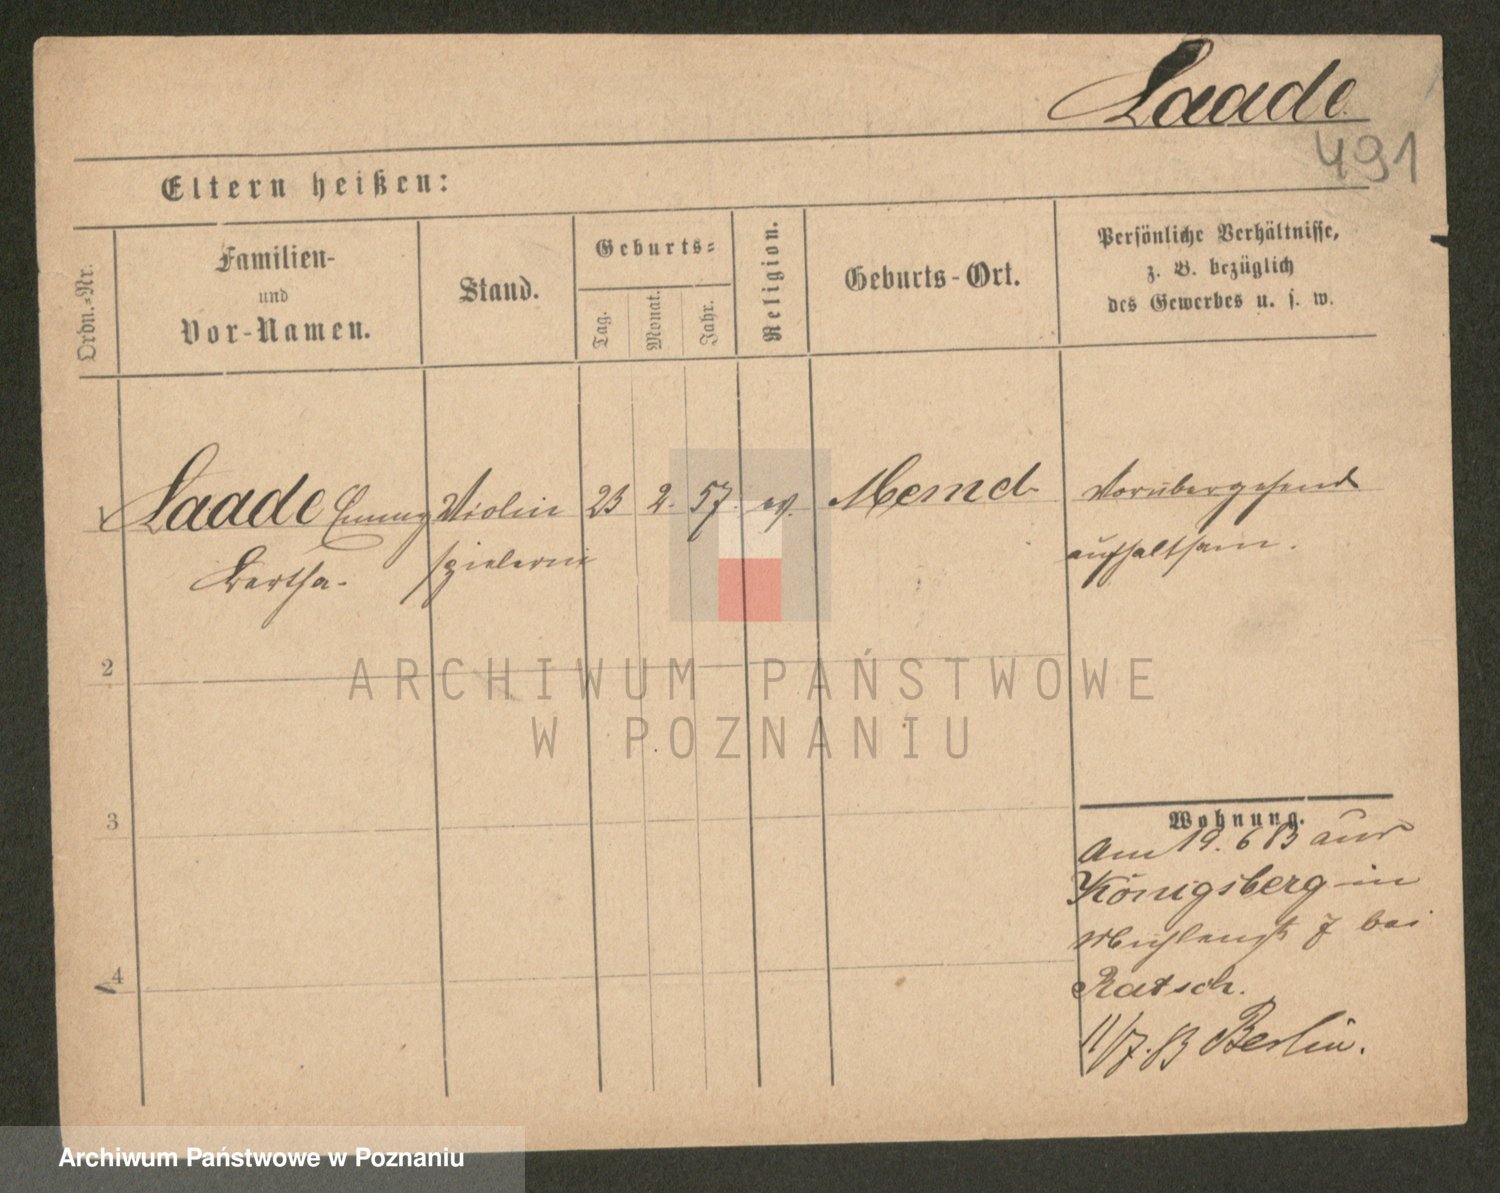 Laade
491
Eltern heißen:
Ordn.=Nr.
Familien-
und
Vor-Namen.
Stand.
Geburts=
Tag.
Monat.
Jahr.
Religion.
Geburts-Ort.
Persönliche Verhältnisse,
z. B. bezüglich
des Gewerbes u. s. w.
Laade Emmy Violin 23 2. 57. ev. Memel vorübergehend
Bertha. spielerin aufhaltsam.
2
3
4
Wohnung.
Am 19. 6 83 aus
Königsberg in
Mühlenstr 7 bei
Ratsch.
11/7. 83 Berlin.
ARCHIWUM PAŃSTWOWE
W POZNANIU
Archiwum Państwowe w Poznaniu